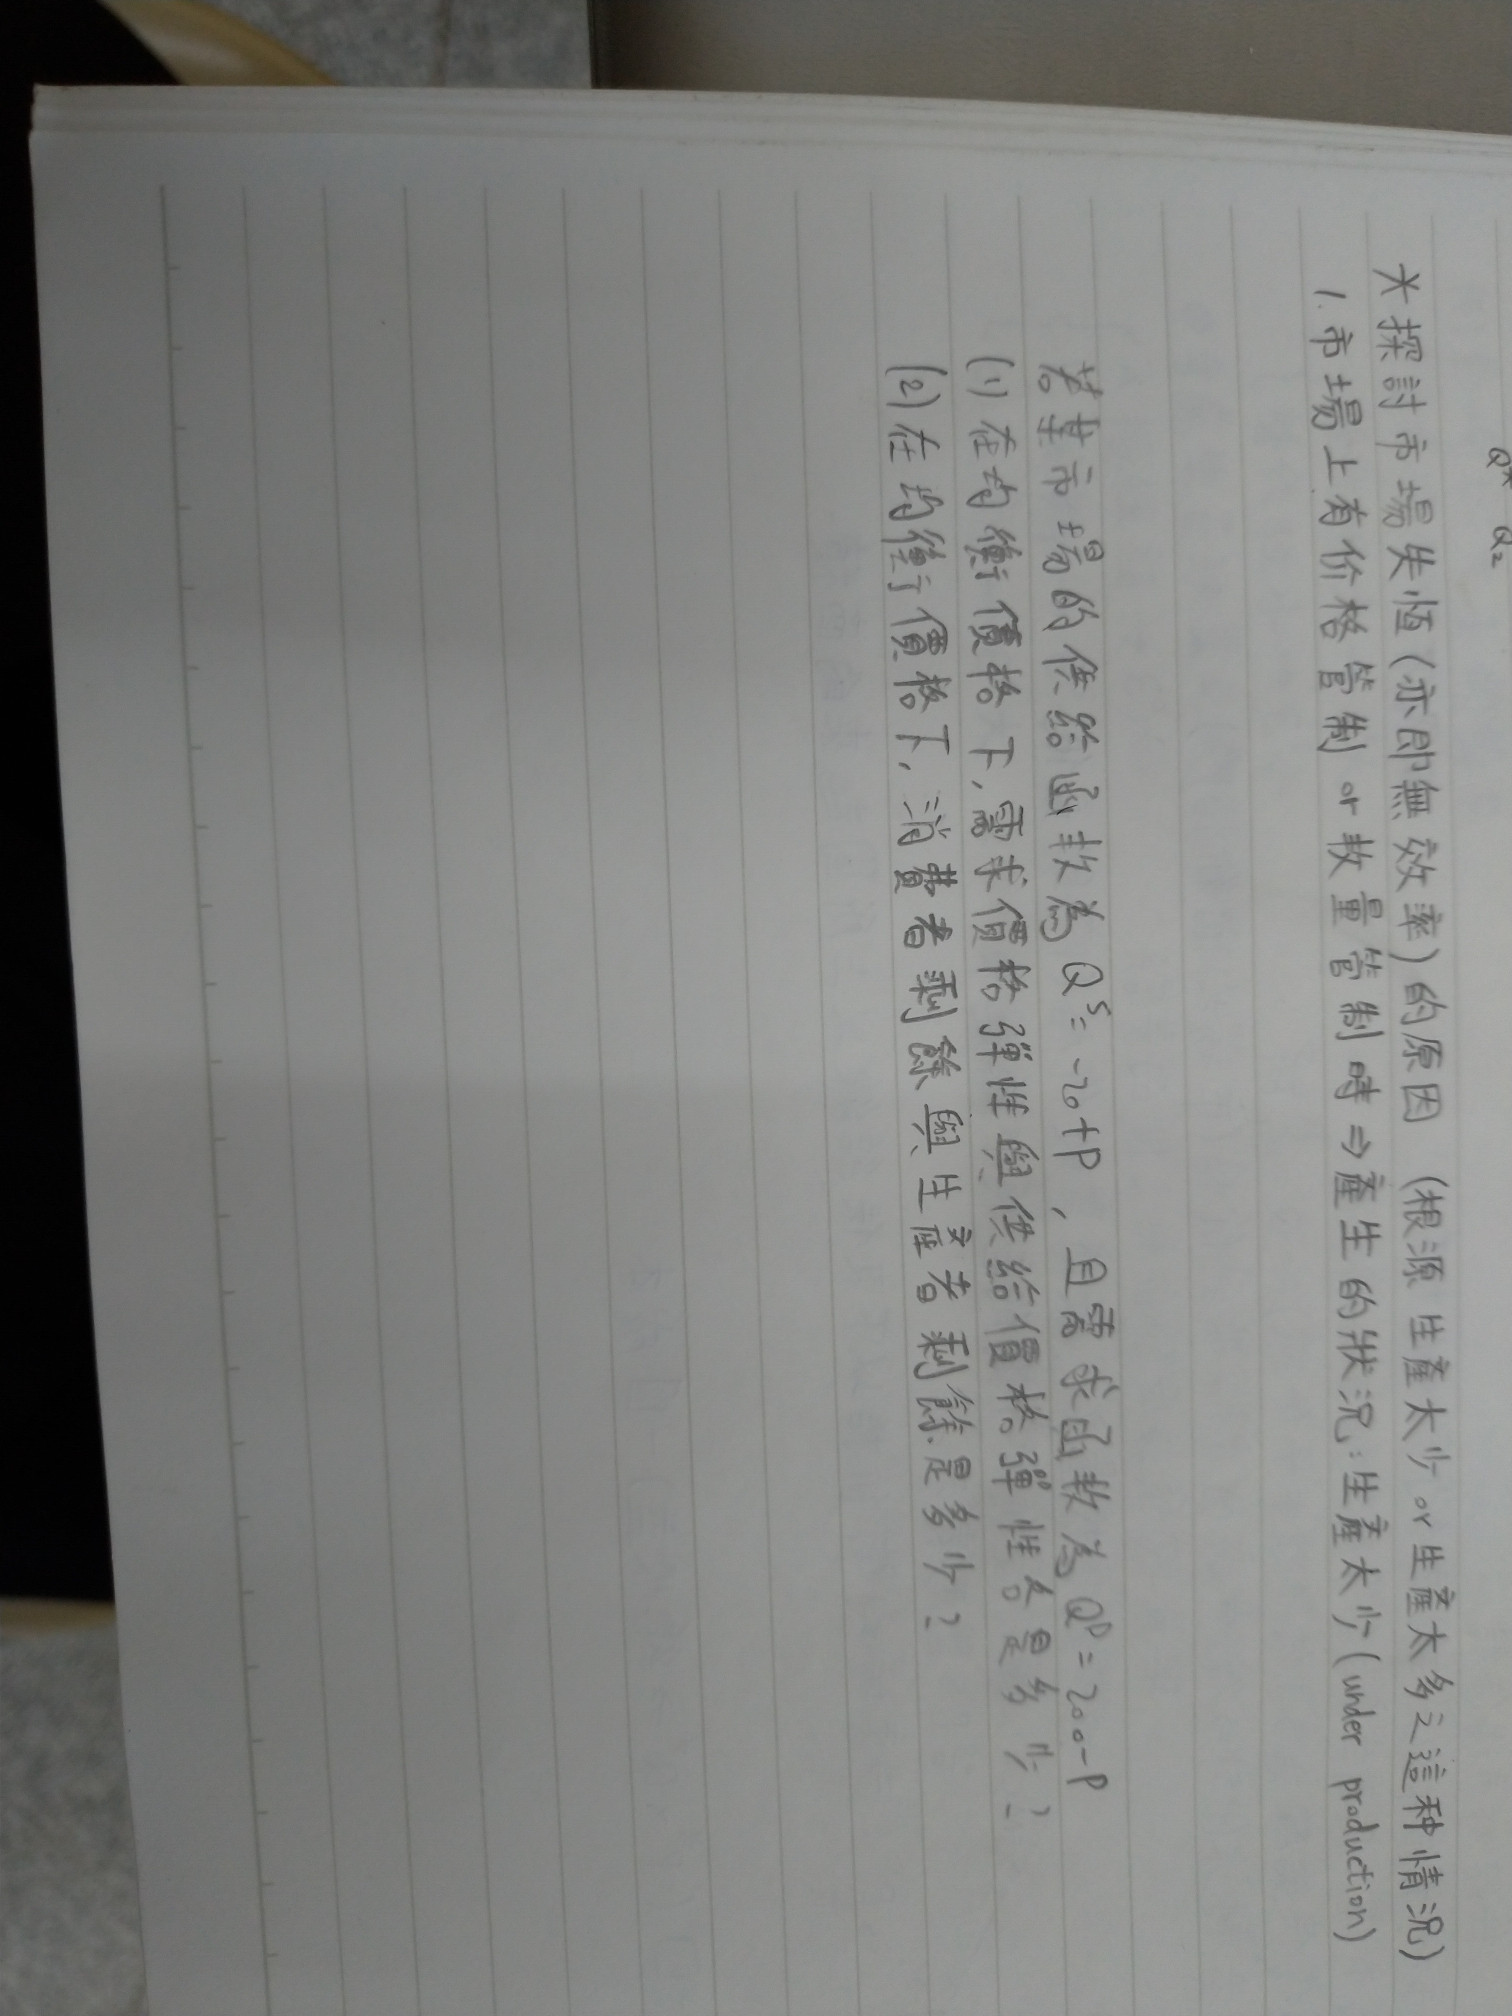 Q* Q₂
*探討市場失恆(亦即無效率)的原因 (根源 生產太少 or 生產太多之這種情況)
1. 市場上有价格管制 or 数量管制時⇒產生的狀況:生產太少(under production)
若某市場的供給函数為 Qˢ=-20+P , 且需求函数為 Qᴰ=200-P
(1) 在均衡價格下,需求價格彈性與供給價格彈性各是多少?
(2) 在均衡價格下,消費者剩餘與生產者剩餘是多少?